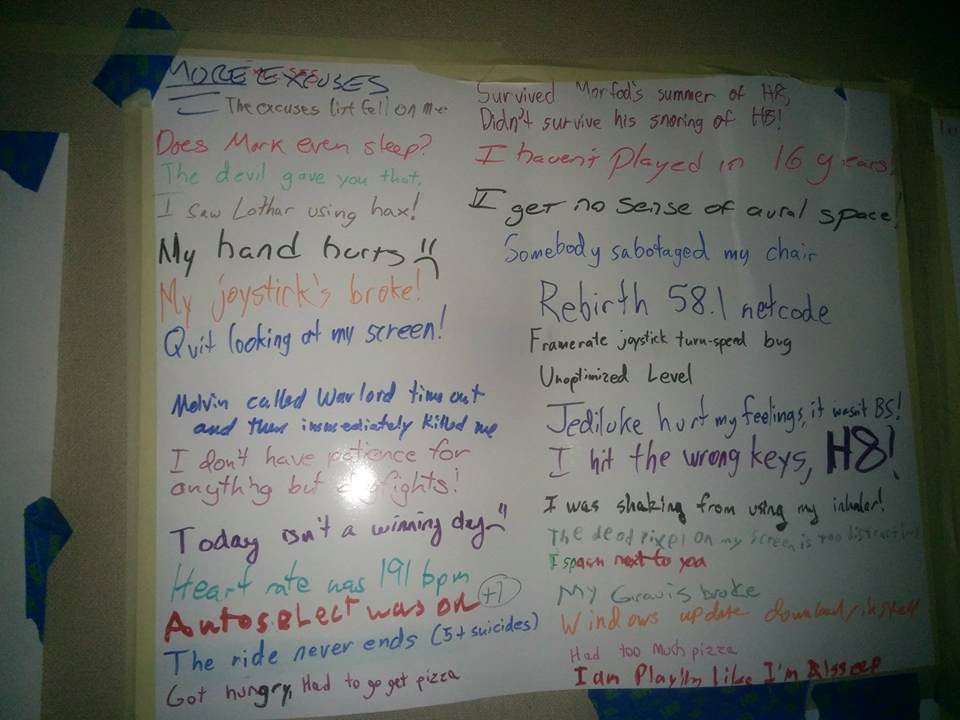 MORE EXCUSES
The excuses list fell on me
Does Mark even sleep?
The devil gave you that.
I saw Lothar using hax!
My hand hurts
My joystick's broke!
Quit looking at my screen!
Melvin called Warlord time out
and then immediately killed me
I don't have patience for
anything but dogfights!
Today isn't a winning day
Heart rate was 191 bpm
Autoselect was on +1
The ride never ends (5+ suicides)
Got hungry, Had to go get pizza
Survived Morfod's summer of H8,
Didn't survive his snoring of H8!
I haven't played in 16 years!
I get no sense of aural space!
Somebody sabotaged my chair
Rebirth 58.1 netcode
Framerate joystick turn-speed bug
Unoptimized Level
Jediluke hurt my feelings, it wasn't BS!
I hit the wrong keys, H8!
I was shaking from using my inhaler!
The dead pixel on my screen is too distracting
I spawn next to you
My Gravis broke
Windows update download/install
Had too much pizza
I am Playin Like I'm